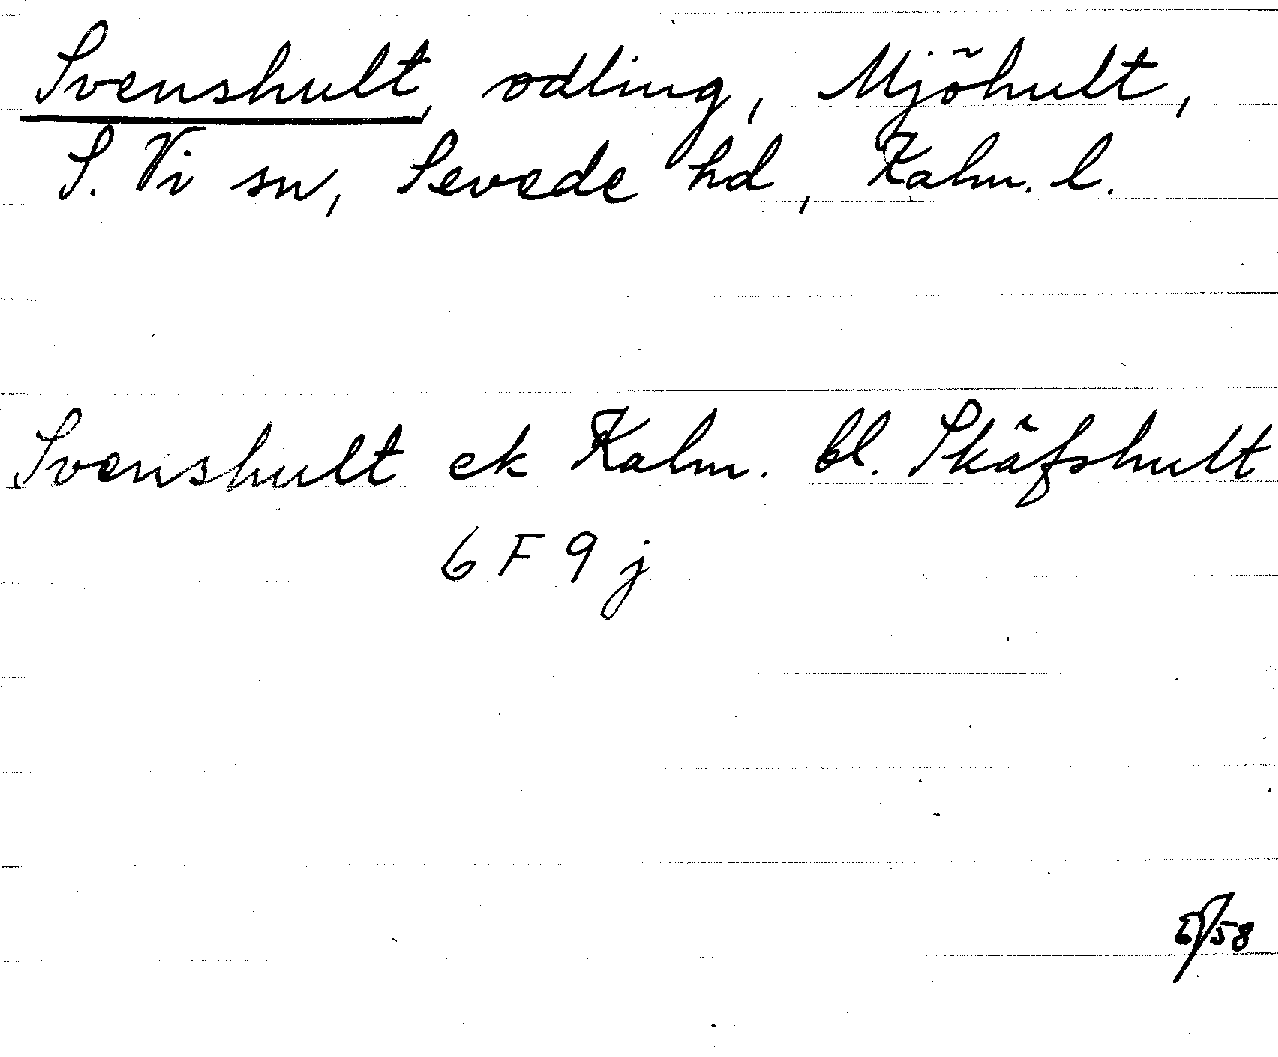 Svenshult, odling, Mjöhult,
S. Vi sn, Sevede hd, Kalm. l.
Svenshult ek Kalm. bl. Skäfshult
6 F 9 j